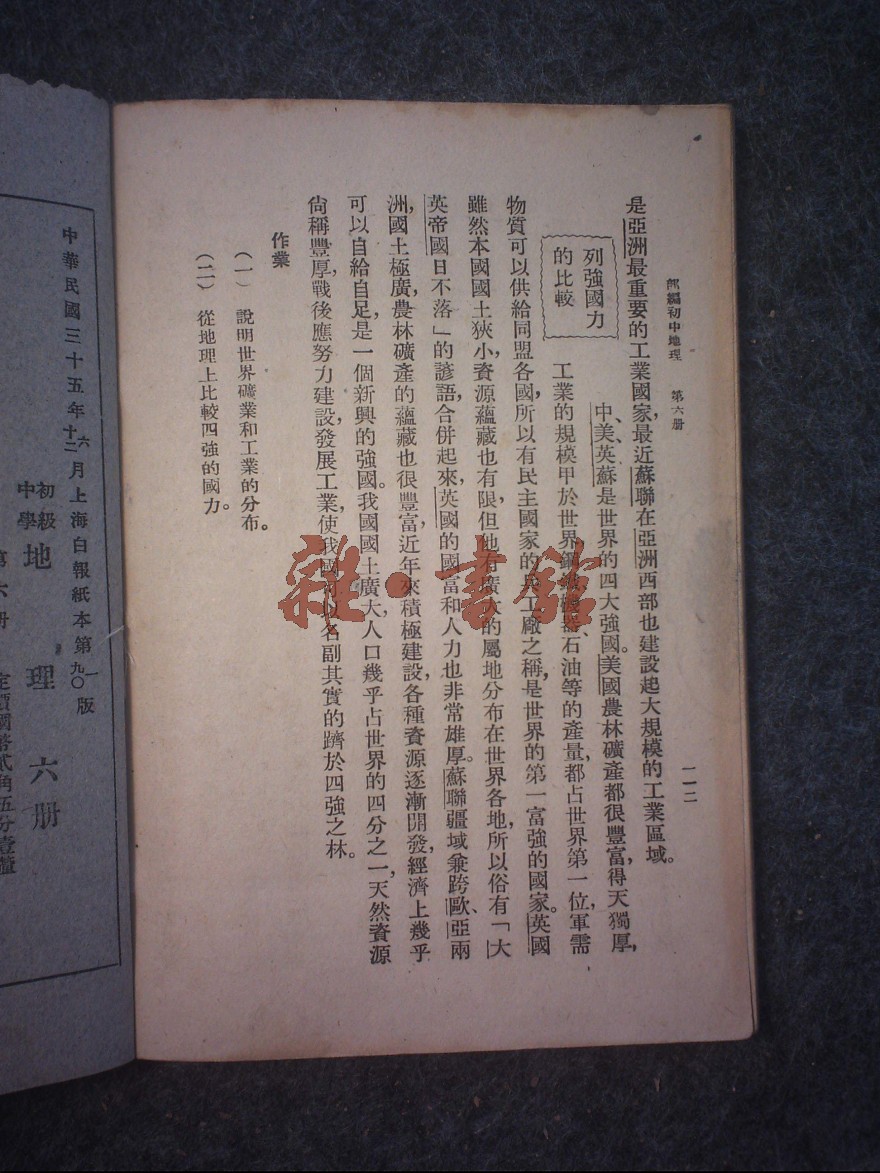 部編初中地理　第六册
一一二
是亞洲最重要的工業國家，最近蘇聯在亞洲西部也建設起大規模的工業區域。
列強國力
的比較
中、美、英、蘇是世界的四大強國。美國農林礦產都很豐富，得天獨厚，
工業的規模甲於世界，鋼鐵、機器、石油等的產量，都占世界第一位，軍需
物質可以供給同盟各國，所以有民主國家的兵工廠之稱，是世界的第一富強的國家。英國
雖然本國國土狹小，資源蘊藏也有限，但他有廣大的屬地，分布在世界各地，所以俗有「大
英帝國日不落」的諺語，合併起來，英國的國富和人力也非常雄厚。蘇聯疆域兼跨歐、亞兩
洲，國土極廣，農林礦產的蘊藏也很豐富，近年來積極建設，各種資源逐漸開發，經濟上幾乎
可以自給自足，是一個新興的強國。我國國土廣大，人口幾乎占世界的四分之一，天然資源
尙稱豐厚，戰後應努力建設，發展工業，使我國可以名副其實的躋於四強之林。
作業
（一）　說明世界礦業和工業的分布。
（二）　從地理上比較四強的國力。
中華民國三十五年六月上海白報紙本第一版
十二　九〇
初級
中學 地理 六册
第六册　定價國幣貳角五分
雜·書館